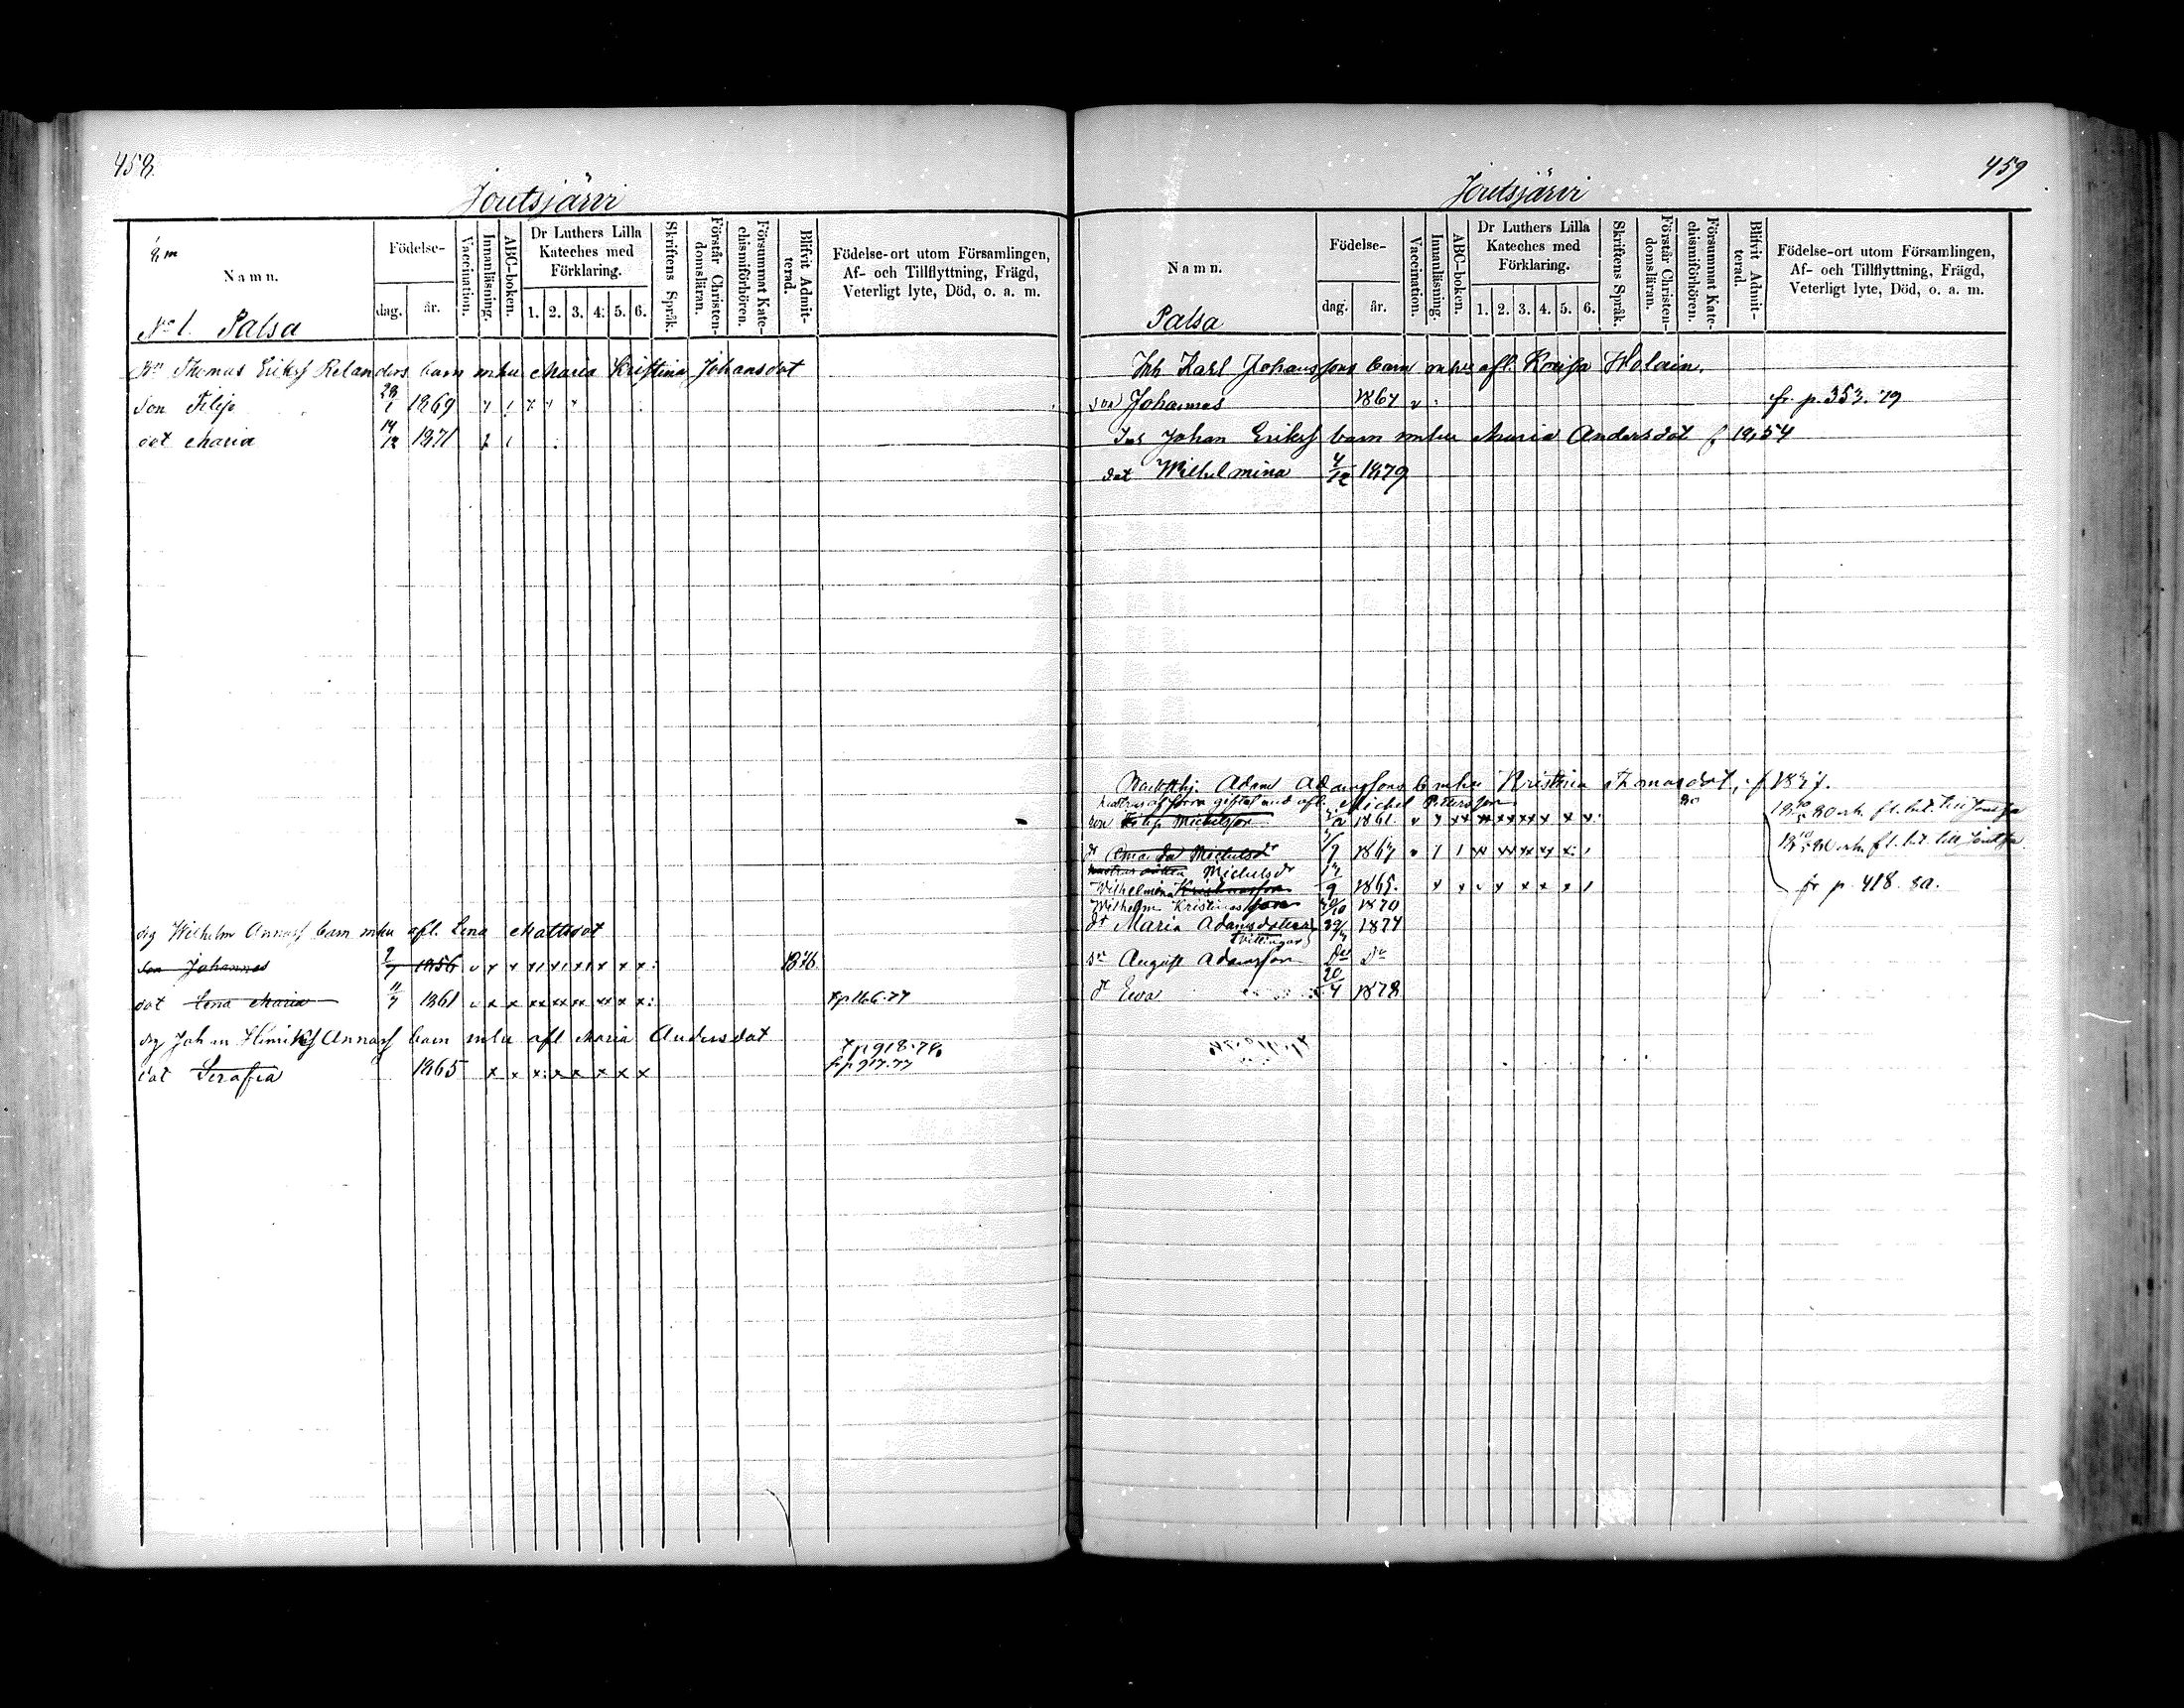 458
Joutsjärvi
Namn.
No 1. Palsa
Födelse-
dag.
år.
Vaccination.
Innanläsning.
ABC-boken.
Dr Luthers Lilla
Kateches med
Förklaring.
1. 2. 3. 4. 5. 6.
Skriftens Språk.
Förstår Christen-
domsläran.
Försummat Kate-
chismiförhören.
Blifvit Admit-
terad.
Födelse-ort utom Församlingen,
Af- och Tillflyttning, Frägd,
Veterligt lyte, Död, o. a. m.
Thomas Erikss Relanders barn mhu Maria Kristina Johansdot
Son Filip 1869
dot Maria 14/12 1871
Wilhelm Annass barn mhu afl. Lena Mattsdot
Son Johannes 1856 1876
dot Lena Maria 11/7 1861 tp 166.77
Johan Henrikss Annass barn mhu afl Maria Andersdot
tp 918.78
dot Serafia 1865 fr p 917.77
459
Joutsjärvi
Namn.
Palsa
Födelse-
dag.
år.
Vaccination.
Innanläsning.
ABC-boken.
Dr Luthers Lilla
Kateches med
Förklaring.
1. 2. 3. 4. 5. 6.
Skriftens Språk.
Förstår Christen-
domsläran.
Försummat Kate-
chismiförhören.
Blifvit Admit-
terad.
Födelse-ort utom Församlingen,
Af- och Tillflyttning, Frägd,
Veterligt lyte, Död, o. a. m.
Inh Karl Johanssons barn mhu afl. Lovisa Holain.
son Johannes 1867 fr. p. 353. 79
Inh Johan Erikss barn mhu Maria Andersdot f 1854
dot Wilhelmina 4/12 1879
Adam Adamssons b mhu Kristina Thomasdot, f 1837.
hustrus af förra giftet med afl. Michel Petersson
son Filip Michelsson 1861
d Amanda Michelsdr 1867
Michelsdr
Wilhelmina 1865. fr p. 418. 80.
Wilhelm Kristinasson 1870
dr Maria Adamsdotter 1877
Tvillingar
sn August Adamsson Do Do
d Eva 20/4 1878